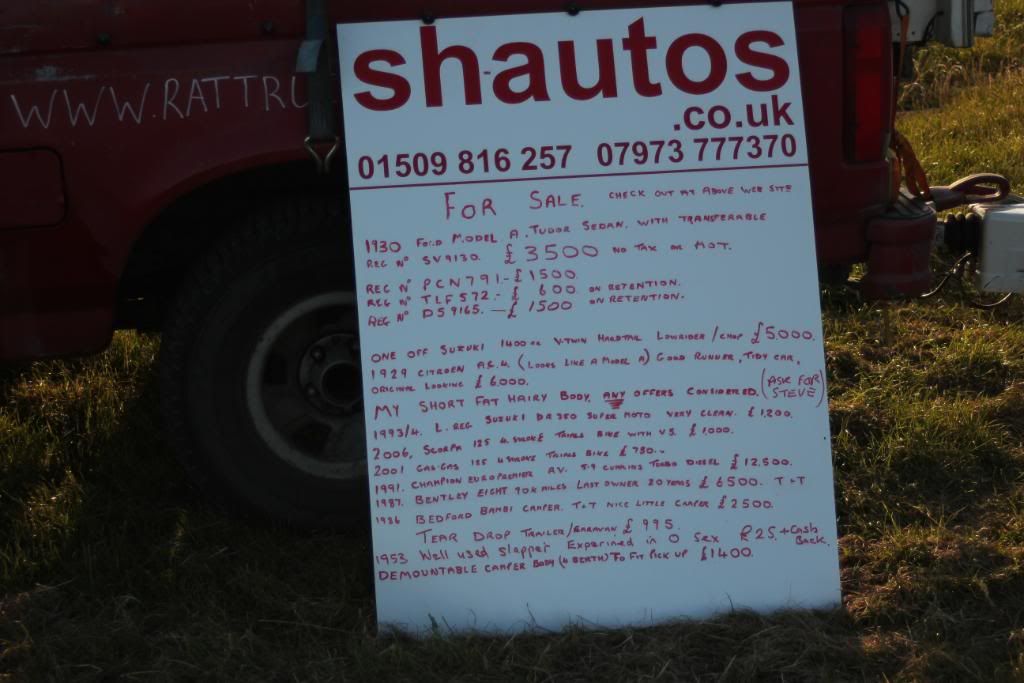 WWW.RATTRU
sh-autos
.co.uk
01509 816 257 07973 777370
FOR SALE. CHECK OUT AT ABOVE WEB SITE
1930 FORD MODEL A. TUDOR SEDAN. WITH TRANSFERABLE
REG Nº SV9130. £3500 NO TAX OR MOT.
REG Nº PCN791 - £1500.
REG Nº TLF572. - £ 600. ON RETENTION.
REG Nº DS9165. - £ 1500 ON RETENTION.
ONE OFF SUZUKI 1400cc V.TWIN HARDTAIL LOWRIDER / CHOP £5.000.
1929 CITROEN AC4. (LOOKS LIKE A MODEL A) GOOD RUNNER, TIDY CAR,
ORIGINAL LOOKING £6.000.
MY SHORT FAT HAIRY BODY. ANY OFFERS CONSIDERED. (ASK FOR STEVE)
1993/4. L. REG SUZUKI DR350 SUPER MOTO VERY CLEAN. £1,200.
2006, SCORPA 125 4 STROKE TRIALS BIKE WITH V5. £1,000.
2001 GAS-GAS 125 4 STROKE TRIALS BIKE £750.
1991. CHAMPION EUROPREMIER R.V. 5.9 CUMMINS TURBO DIESEL £12,500.
1987. BENTLEY EIGHT 90K MILES LAST OWNER 20 YEARS £6500. T+T
1986 BEDFORD BAMBI CAMPER. T+T NICE LITTLE CAMPER £2500.
TEAR DROP TRAILER/CARAVAN £995.
1953 Well used slapper Experined in O Sex £25.+Cash Back.
DEMOUNTABLE CAMPER BODY (4 BERTH) TO FIT PICK UP £1400.